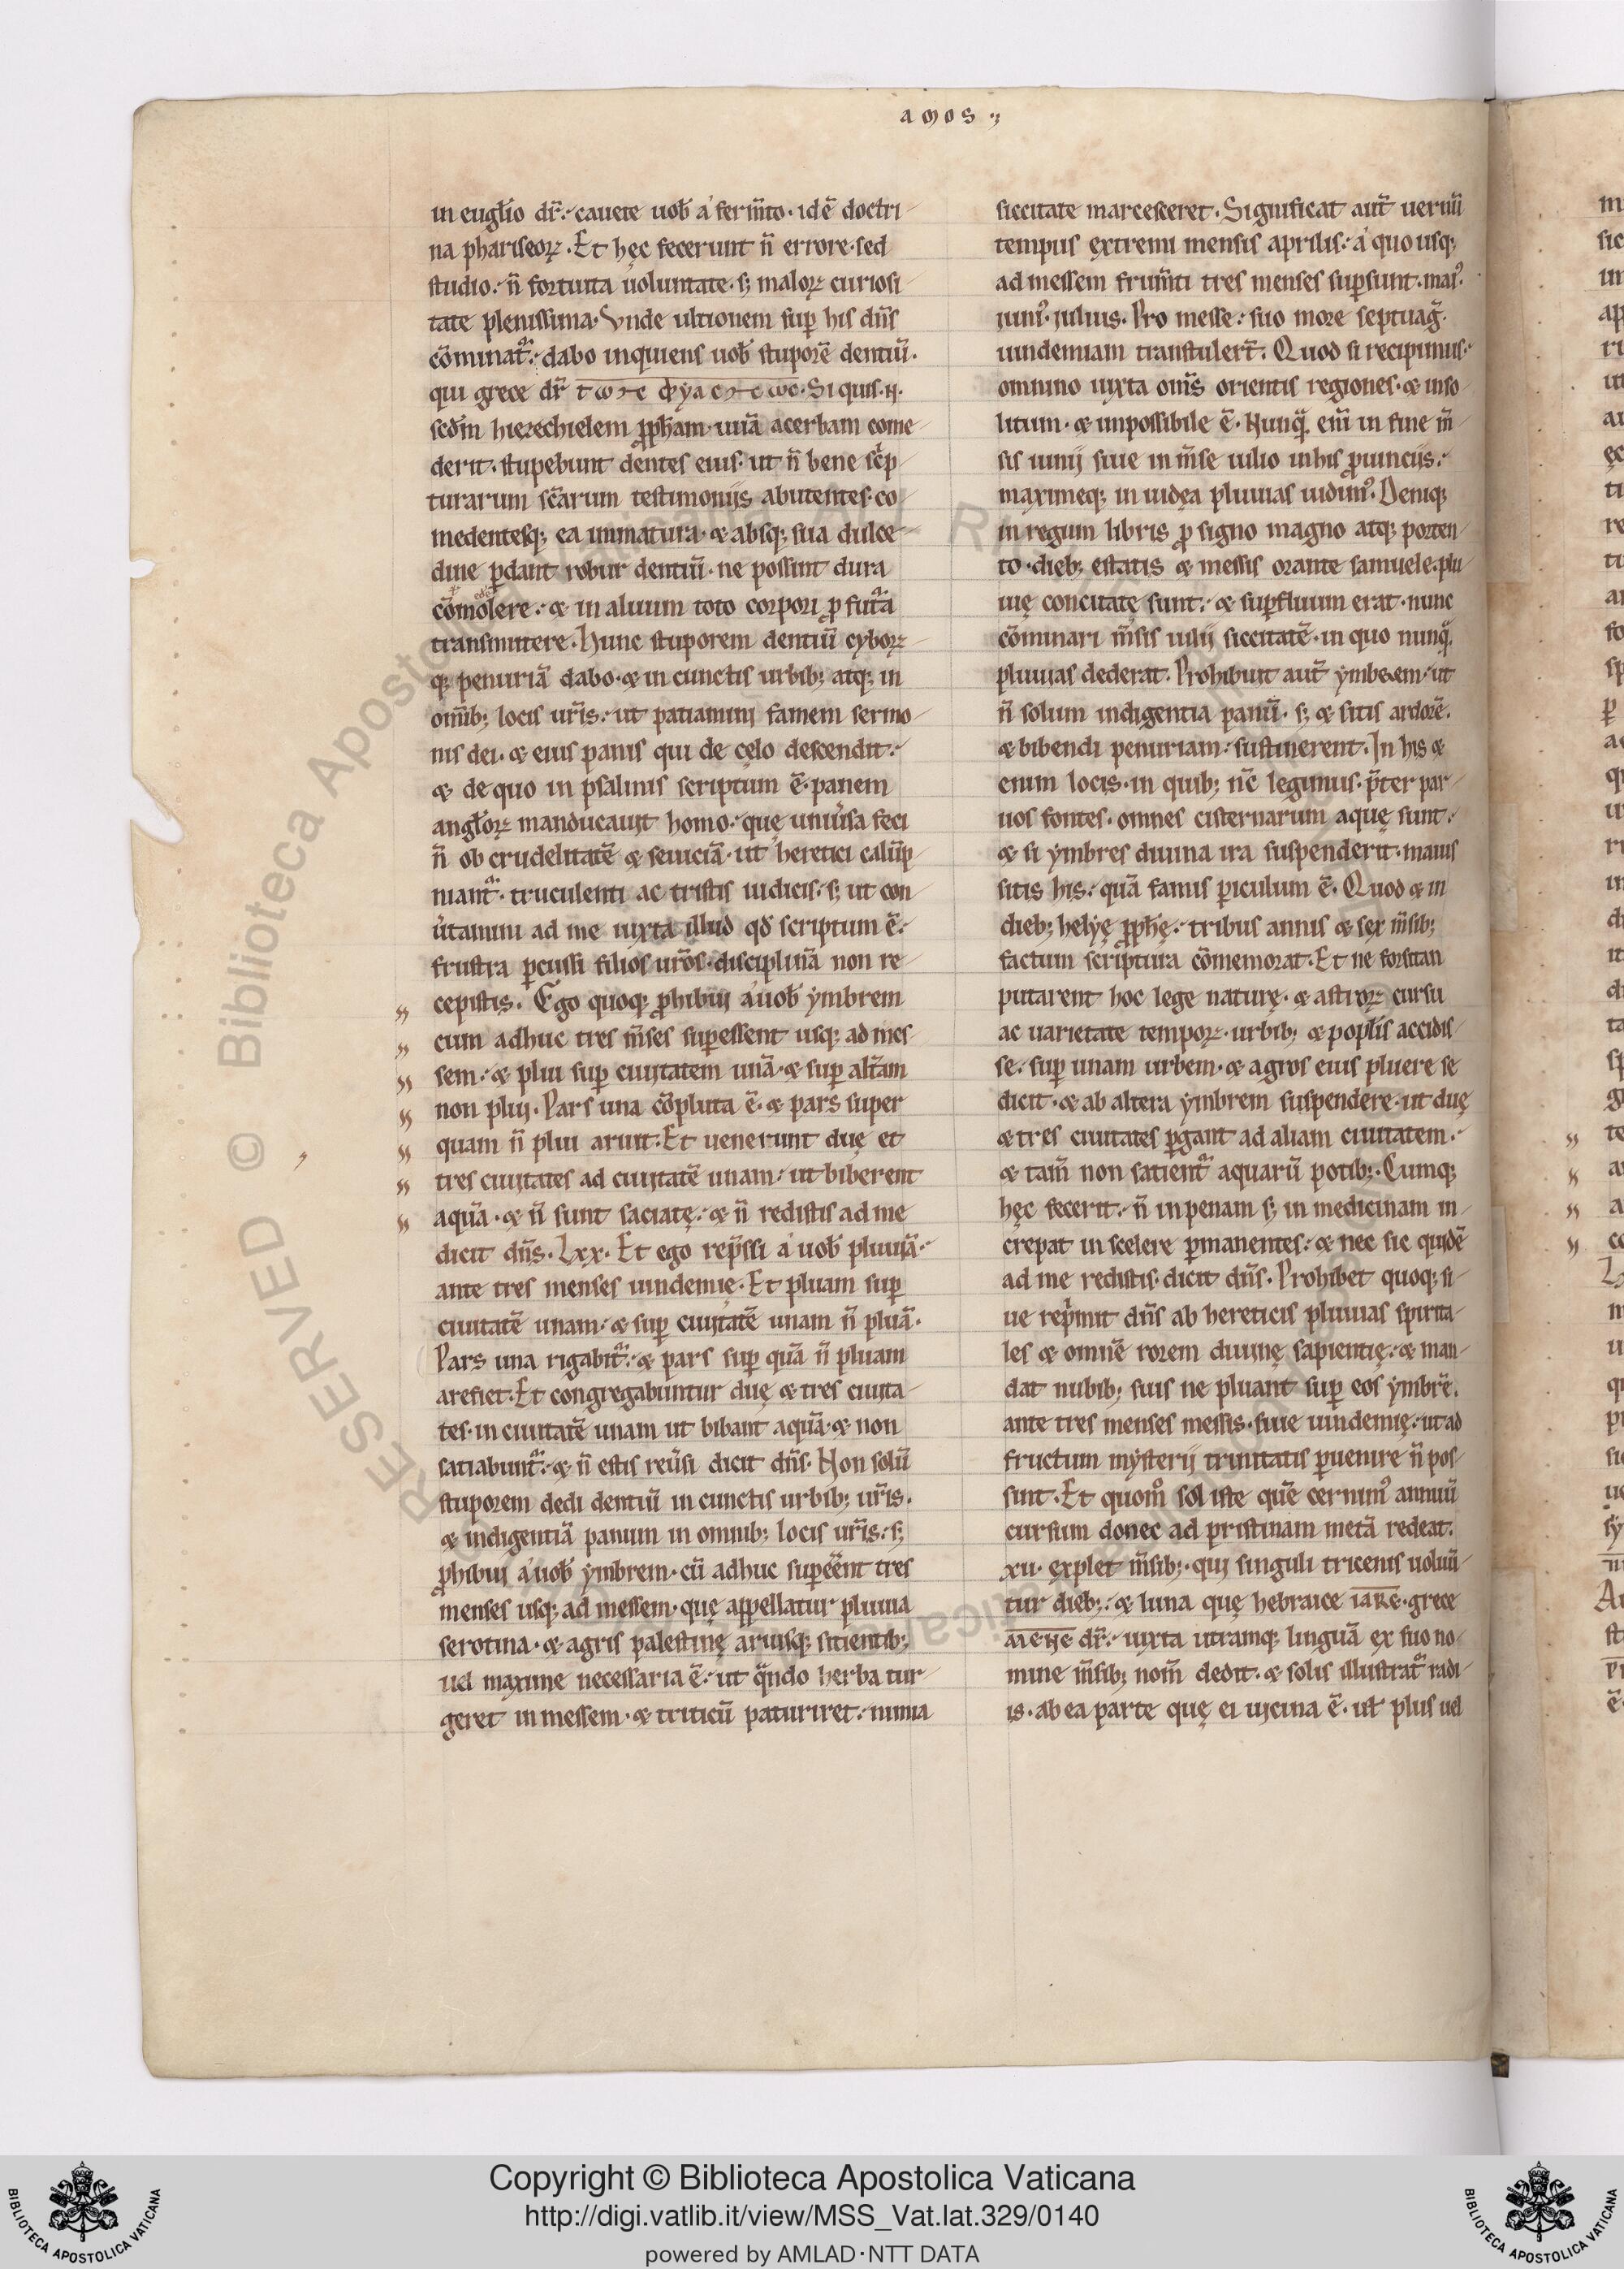 amos
in eugl̄io dr̄. cauete uob̄ a ferm̄to. idē doctri-
na phariseoꝝ. Et hęc fecerunt n̄ errore. sed
studio. n̄ fortuita uoluntate. s; maloꝝ curiosi-
tate plenissima. Vnde ultionem suꝑ his dn̄s
cōminat᷑. dabo inquiens uob̄ stuporē dentiū.
qui grece dr̄ Si quis.
scd̄m hiezechielem ꝓph̄am. uuā acerbam come-
derit. stupebunt dentes eius. ut n̄ bene sc̄p-
turarum sc̄arum testimoniis abutentes. co-
medentesq; ea immatura. & absq; sua dulce-
dine ꝑdant robur dentiū. ne possint dura
cōmolere. & in aluum toto corpori ꝓfut᷑a
transmittere. Hunc stuporem dentiū cyboꝝ
q; penuriā dabo. & in cunctis urbib; atq; in
om̄ib; locis ur̄is. ut patiamini famem sermo-
nis dei. & eius panis qui de cęlo descendit.
& de quo in psalmis scriptum ē. panem
angl̄oꝝ manducauit homo. quę uniūsa feci
n̄ ob crudelitatē & seuiciā. ut heretici calūp-
niant᷑. truculenti ac tristis iudicis. s; ut con-
ūtamini ad me iuxta illud qd̄ scriptum ē.
frustra ꝑcussi filios ur̄os. disciplinā non re-
cepistis. Ego quoq; ꝓhibui a uob̄ ymbrem
cum adhuc tres m̄ses suꝑessent usq; ad mes-
sem. & plui suꝑ ciuitatem unā. & suꝑ alt̄am
non plui. Pars una cōpluta ē. & pars super
quam n̄ plui aruit. Et uenerunt duę et
tres ciuitates ad ciuitatē unam. ut biberent
aquā. & n̄ sunt saciatę. & n̄ redistis ad me
dicit dn̄s. Lxx. Et ego rep̄ssi a uob̄ pluuiā.
ante tres menses uindemię. Et pluam suꝑ
ciuitatē unam. & suꝑ ciuitatē unam n̄ pluā.
Pars una rigabit᷑. & pars suꝑ quā n̄ pluam
arefiet. Et congregabuntur duę & tres ciuita-
tes. in ciuitatē unam ut bibant aquā. & non
satiabunt᷑. & n̄ estis reūsi dicit dn̄s. Non solū
stuporem dedi dentiū in cunctis urbib; ur̄is.
& indigentiā panum in omnib; locis ur̄is. s;
ꝓhibui a uob̄ ymbrem. cū adhuc suꝑēent tres
menses usq; ad messem. quę appellatur pluuia
serotina. & agris palestinę aruisq; sitientib;
uel maxime necessaria ē. ut qͣndo herba tur-
geret in messem. & triticū paturiret. nimia
siccitate marcesceret. Significat aut̄ uernū
tempus extremi mensis aprilis. a quo usq;
ad messem frum̄ti tres menses suꝑsunt. mai᷒.
iuni᷒. iulius. Pro messe. suo more septuag̃.
uindemiam transtuler̄t. Quod si recipimus.
omnino iuxta om̄s orientis regiones. & inso-
litum. & impossibile ē. Nunqͣ. eni̅ in fine m̄-
sis iunij siue in m̄se iulio in his ꝓuinciis.
maximeq; in iudęa pluuias uidim᷒. Deniq;
in regum libris ꝓ signo magno atq; porten-
to. dieb; estatis & messis orante samuele. plu-
uię concitatę sunt. & suꝑfluum erat. nunc
cōminari m̄sis iulij siccitatē. in quo nunqͣ.
pluuias dederat. Prohibuit aut̄ ymbrem. ut
n̄ solum indigentia panū. s; & sitis ardorē.
& bibendi penuriam. sustinerent. In his &
enim locis. in quib; nc̄ legimus. p̄ter par-
uos fontes. omnes cisternarum aquę sunt.
& si ymbres diuina ira suspenderit. maius
sitis his. quā famis ꝑiculum ē. Quod & in
dieb; helyę ꝓph̄ę. tribus annis & sex m̄sib;
factum scriptura cōmemorat. Et ne forsitan
putarent hoc lege naturę. & astroꝝ cursu
ac uarietate tempoꝝ. urbib; & popl̄is accidis-
se. suꝑ unam urbem. & agros eius pluere se
dicit. & ab altera ymbrem suspendere. ut duę
& tres ciuitates ꝑgant ad aliam ciuitatem.
& tam̄ non satient᷑ aquarū potib;. Cumq;
hęc fecerit. n̄ in penam s; in medicinam in-
crepat in scelere ꝑmanentes. & nec sic quidē
ad me redistis. dicit dn̄s. Prohibet quoq; si-
ue rep̄mit dn̄s ab hereticis pluuias spirita-
les & omnē rorem diuinę sapientię. & man-
dat nubib; suis ne pluant suꝑ eos ymbrē.
ante tres menses messis. siue uindemię. ut ad
fructum mysterij trinitatis ꝑuenire n̄ pos-
sint. Et quom̊ sol iste quē cernim᷒ annuū
cursum donec ad pristinam metā redeat.
xii. explet m̄sib;. qui singuli tricenis uoluū-
tur dieb;. & luna quę hebraice iare. grece
mene dr̄. iuxta utramq; linguā ex suo no-
mine m̄sib; nom̄ dedit. & solis illustrat᷑ radi-
is. ab ea parte quę ei uicina ē. ut plus uel
RESERVED © Biblioteca Apostolica Vaticana
Copyright © Biblioteca Apostolica Vaticana
http://digi.vatlib.it/view/MSS_Vat.lat.329/0140
powered by AMLAD·NTT DATA
BIBLIOTECA APOSTOLICA VATICANA
BIBLIOTECA APOSTOLICA VATICANA